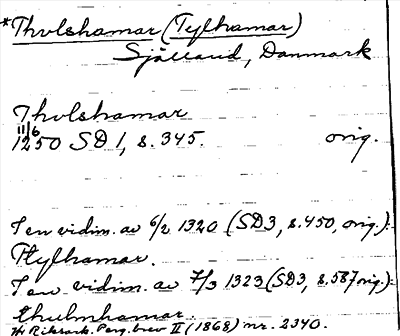 *Thulshamar (Tylhamar)
Sjælland, Danmark
Thulshamar
11/6
1250 SD 1, s. 345. orig.
I en vidim. av 6/2 1320 (SD3, s. 450, orig.):
Hylhamar.
I en vidim. av 7/3 1323 (SD3, s. 587 orig):
thulmhamar.
Jfr Riksark. Perg. brev II (1868) nr. 2340.